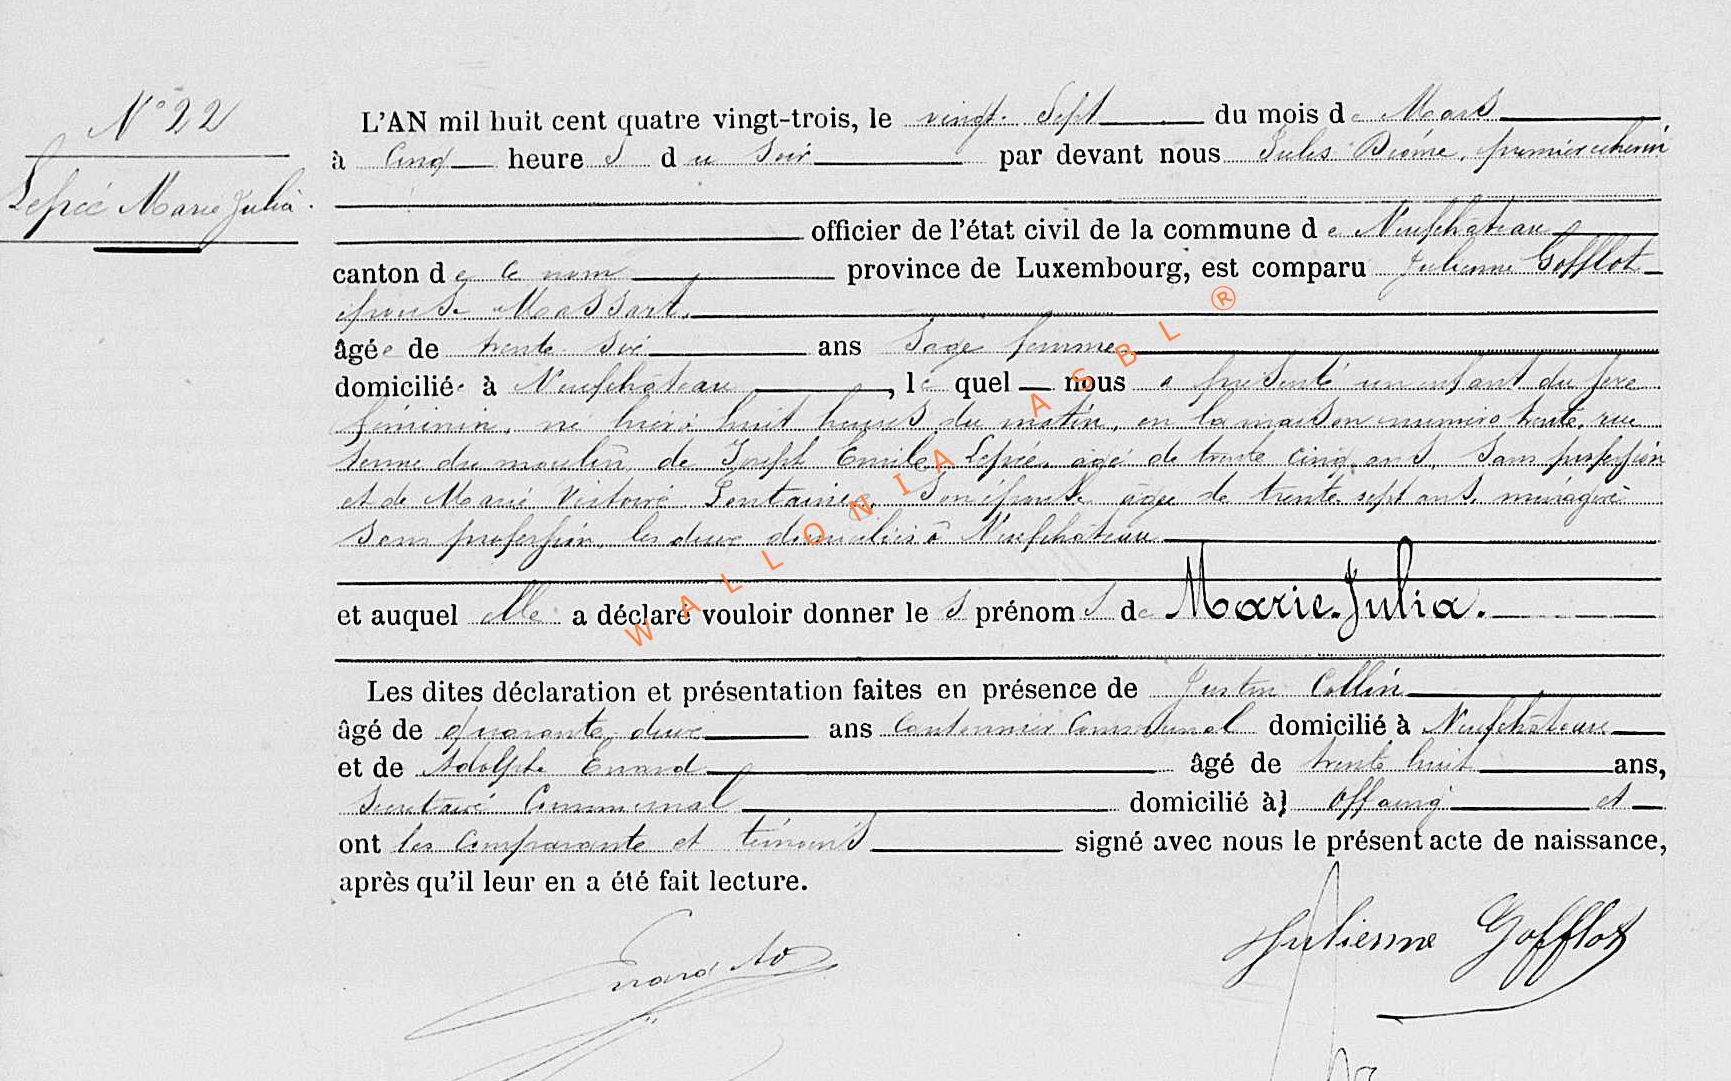 N° 22
Lepiée Marie Julia.
L'AN mil huit cent quatre vingt-trois, le vingt-Sept du mois de Mars
à Cinq heures du Soir par devant nous Jules premier échevin
officier de l'état civil de la commune de Neufchâteau
canton de Ce nom province de Luxembourg, est comparu Julienne Gofflot
épouse Massart.
âgée de trente Six ans Sage femme
domiciliée à Neufchâteau, le quel nous a présenté un enfant du Sexe
féminin, né hier à huit heures du matin, en la maison numéro trente, rue
du moulin, de Joseph Emile Lepiée, âgé de trente cinq ans, Sans profession
et de Marie Victoire Fontaine, Son épouse âgée de trente-sept ans, ménagère
Sans profession, les deux domiciliés à Neufchâteau
et auquel elle a déclaré vouloir donner les prénoms de Marie-Julia.
Les dites déclaration et présentation faites en présence de Justin Collin
âgé de quarante deux ans Cantonnier Communal domicilié à Neufchâteau
et de Adolphe Evrard âgé de trente huit ans,
Secrétaire Communal domicilié à Offaing et
ont les Comparante et témoins signé avec nous le présent acte de naissance,
après qu'il leur en a été fait lecture.
Evrard Ad
Julienne Gofflot
WALLONIA ASBL ®